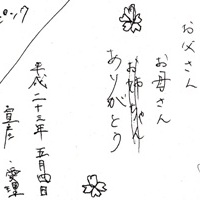 お父さん
お母さん
お姉ちゃん
ありがとう
平成二十三年 五月四日
宣彦・愛理
ピンク